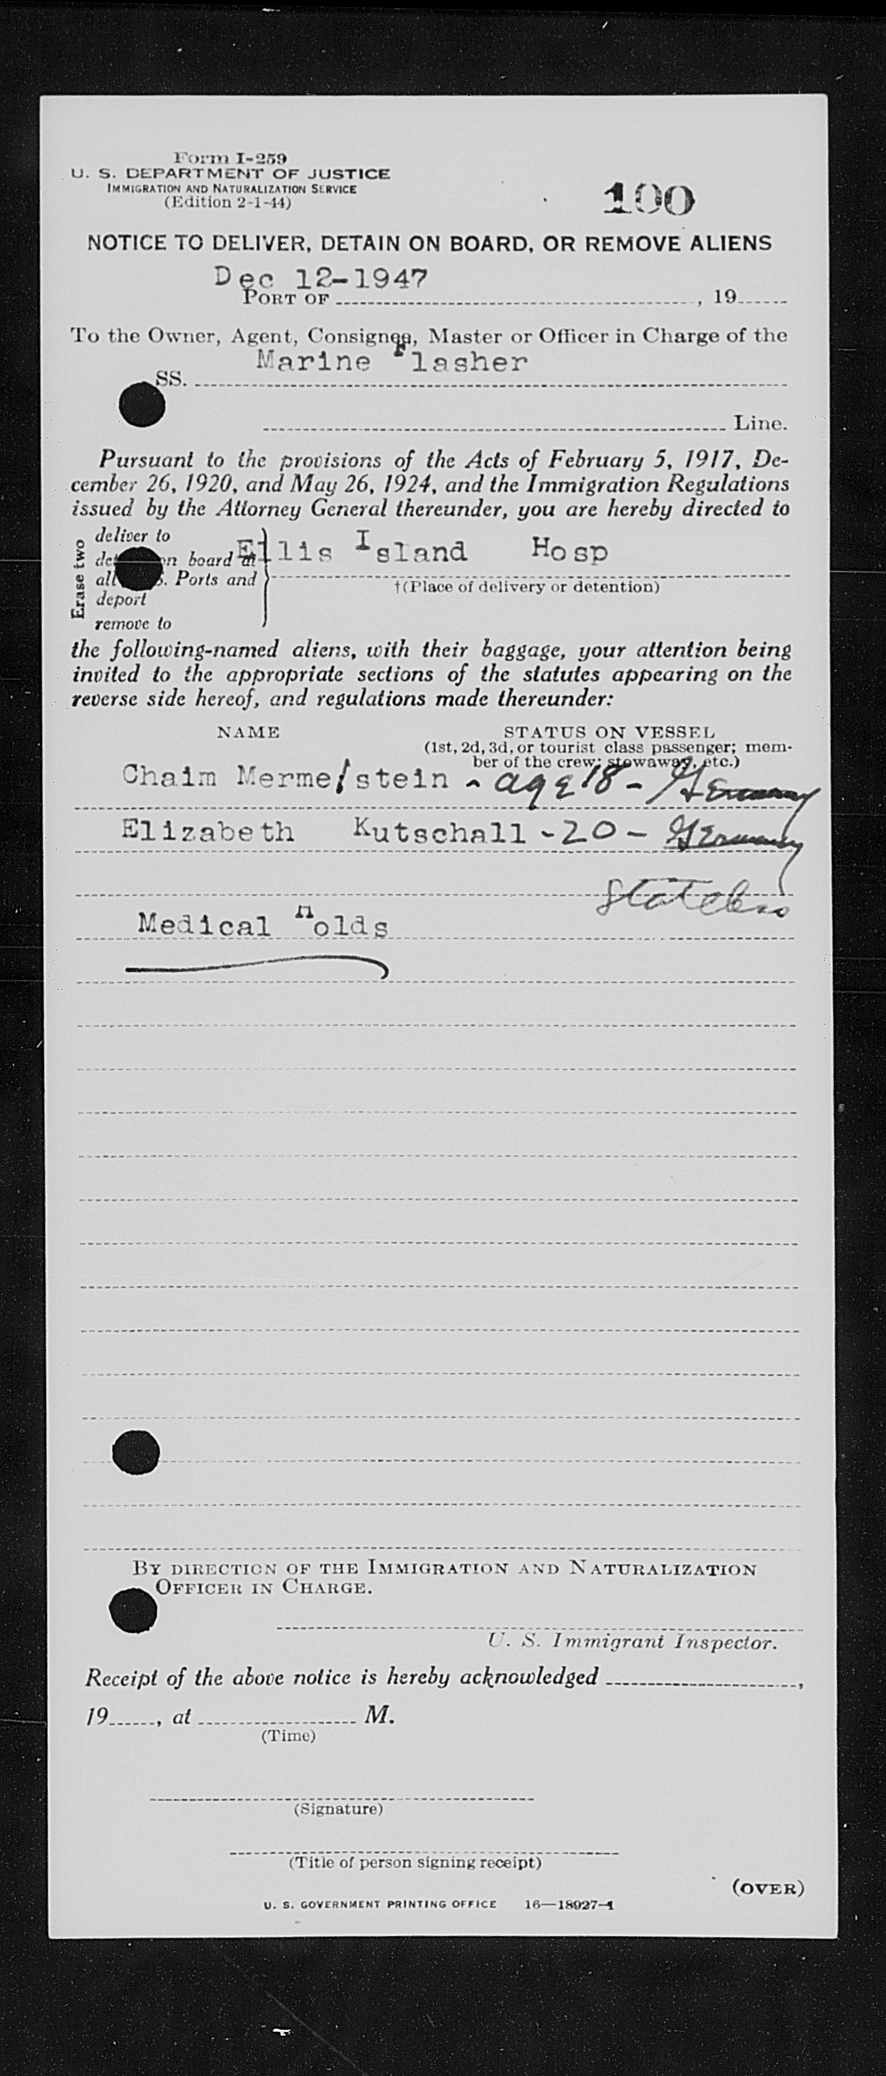 Form I-259
U. S. DEPARTMENT OF JUSTICE
IMMIGRATION AND NATURALIZATION SERVICE
(Edition 2-1-44)
100
NOTICE TO DELIVER, DETAIN ON BOARD, OR REMOVE ALIENS
Dec 12-1947
PORT OF , 19
To the Owner, Agent, Consignee, Master or Officer in Charge of the
Marine Flasher
SS.
Line.
Pursuant to the provisions of the Acts of February 5, 1917, De-
cember 26, 1920, and May 26, 1924, and the Immigration Regulations
issued by the Attorney General thereunder, you are hereby directed to
Erase two
deliver to
on board at Ellis Island Hosp
all Ports and
†(Place of delivery or detention)
deport
remove to
the following-named aliens, with their baggage, your attention being
invited to the appropriate sections of the statutes appearing on the
reverse side hereof, and regulations made thereunder:
NAME STATUS ON VESSEL
(1st, 2d, 3d, or tourist class passenger; mem-
ber of the crew; stowaway, etc.)
Chaim Merme/stein - age 18 - Germany
Elizabeth Kutschall - 20 - Germany
Stateless
Medical Holds
BY DIRECTION OF THE IMMIGRATION AND NATURALIZATION
OFFICER IN CHARGE.
U. S. Immigrant Inspector.
Receipt of the above notice is hereby acknowledged ,
19 , at M.
(Time)
(Signature)
(Title of person signing receipt)
(OVER)
U. S. GOVERNMENT PRINTING OFFICE 16—18927-1